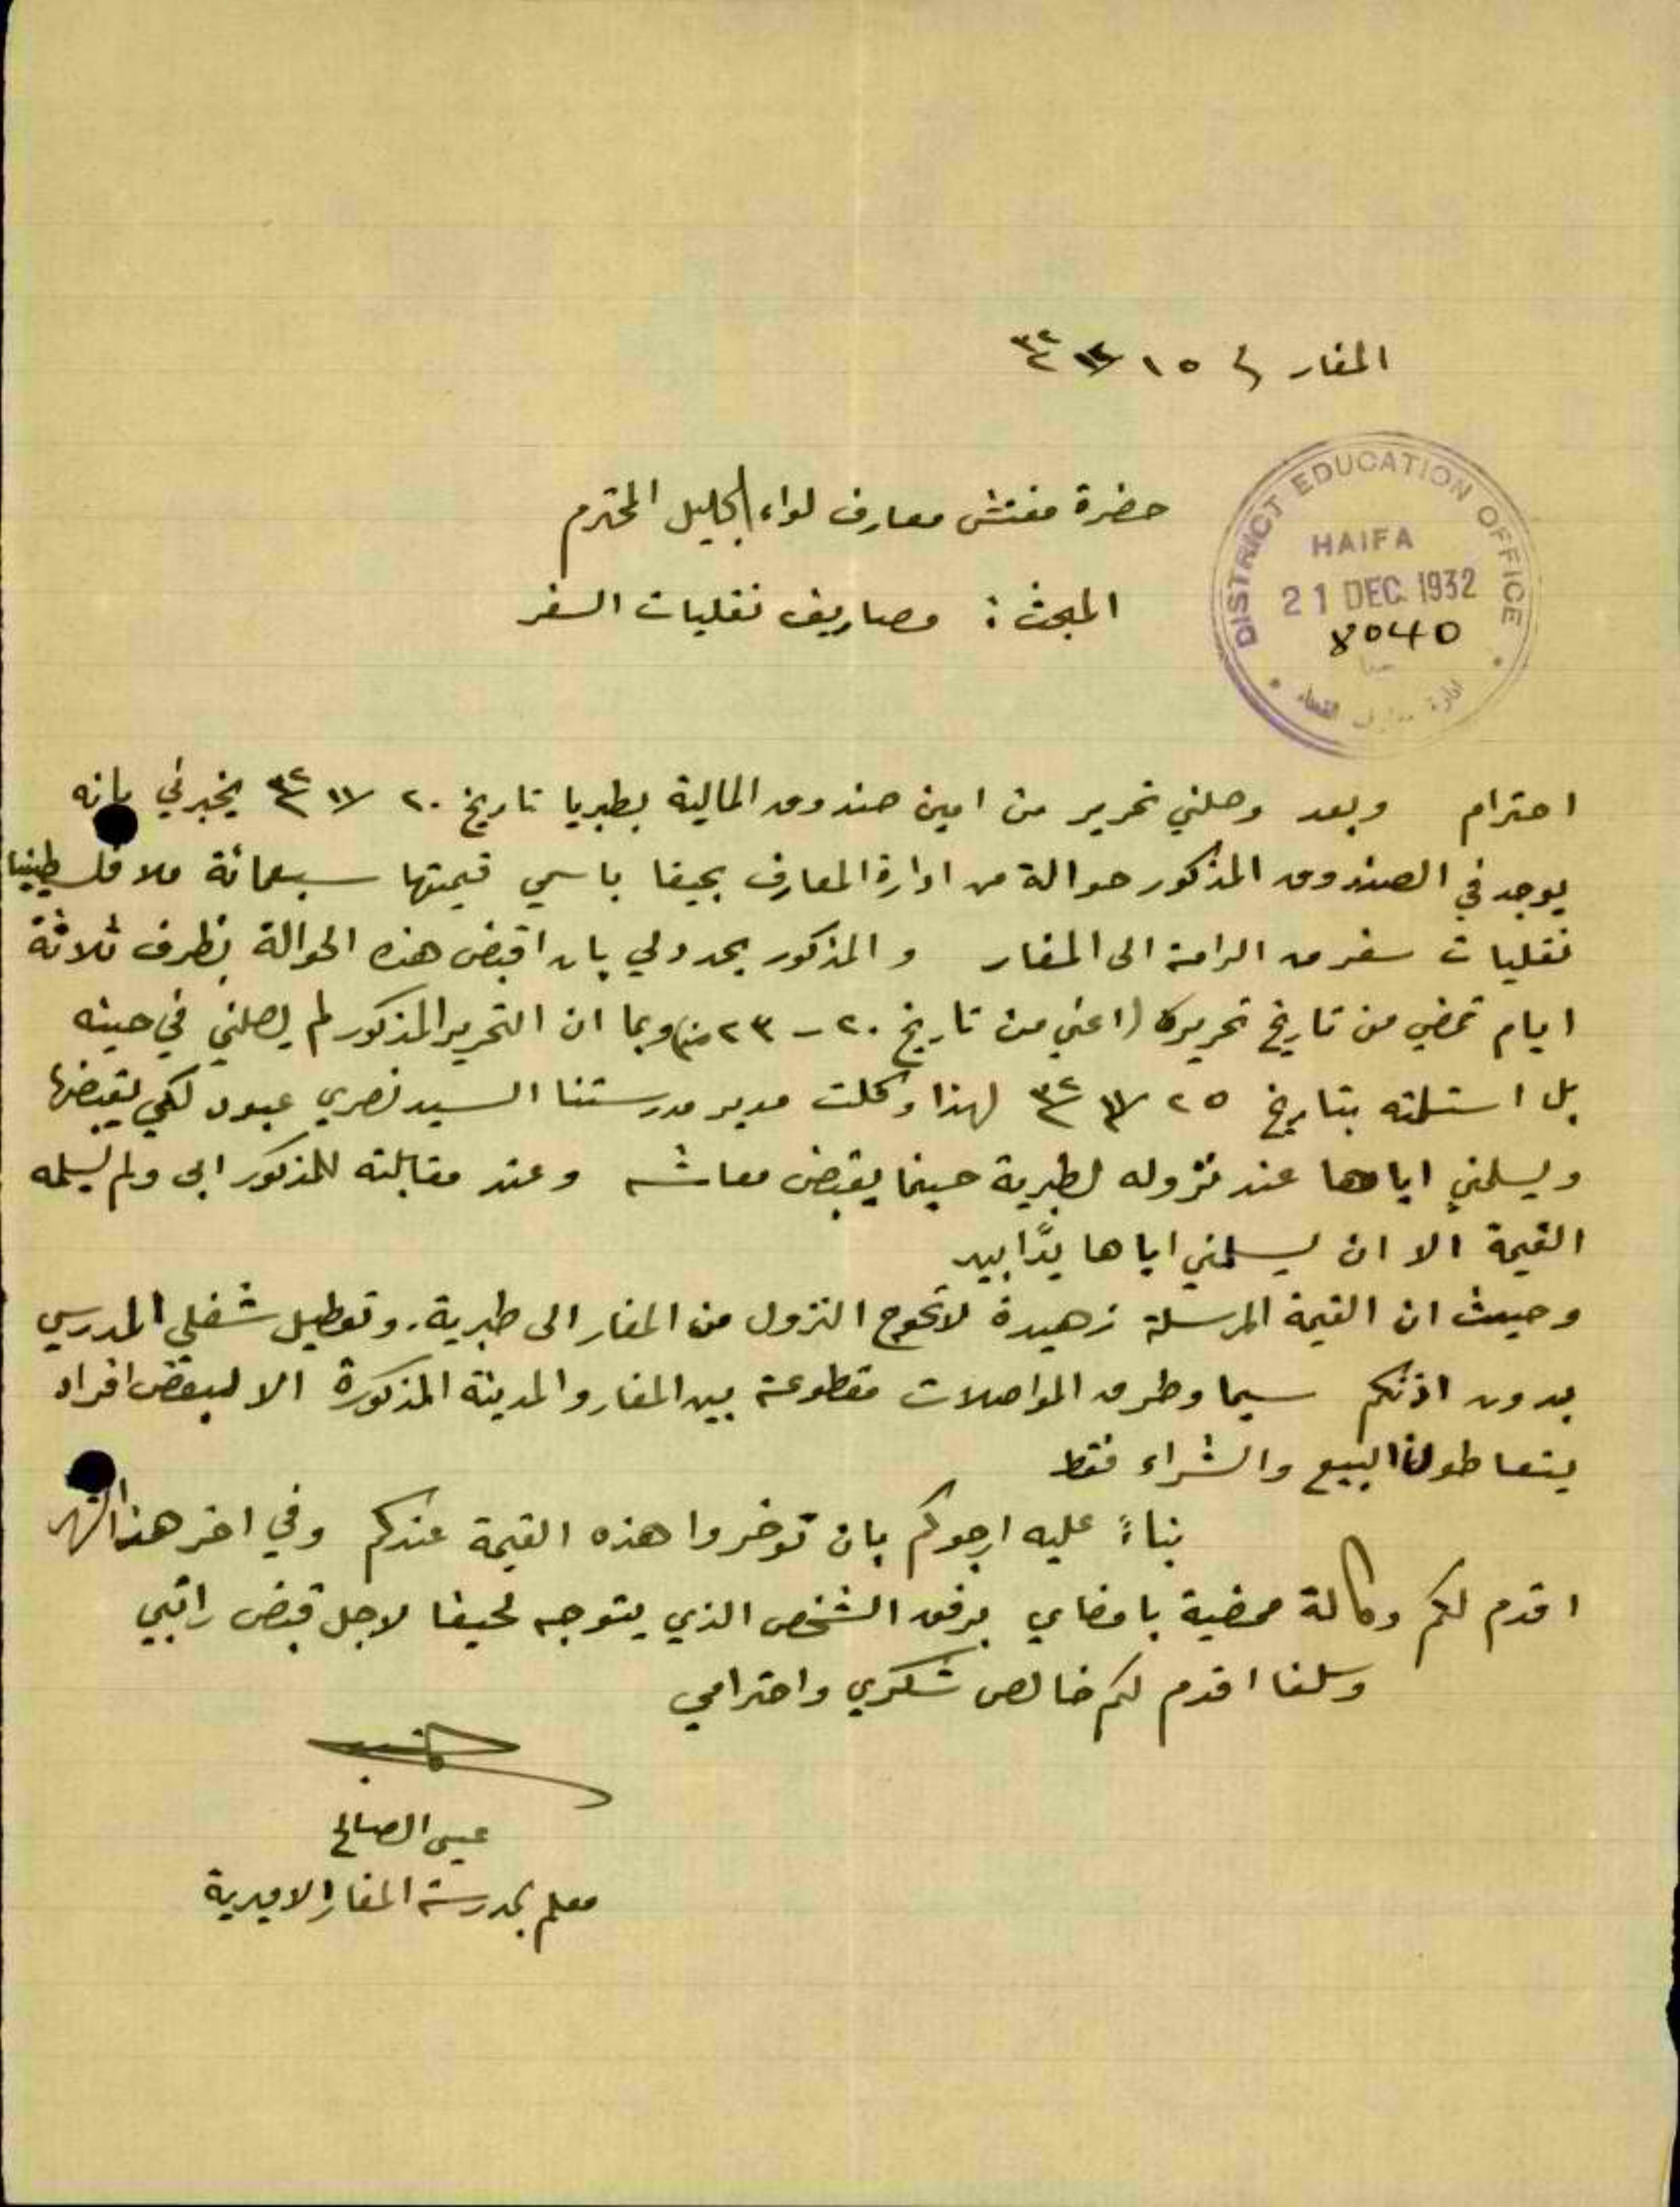 المغار في ١٥ ١٢ ٣٢
حضرة مفتش معارف لواء الجليل المحترم
المبحث : مصاريف نقليات السفر
DISTRICT EDUCATION OFFICE
HAIFA
21 DEC. 1932
8040
ادارة معارف القضاء
احترام وبعد وصلني تحرير من امين صندوق المالية بطبريا تاريخ ٢٠ ١١ ٣٢ يخبرني بانه
يوجد في الصندوق المذكور حوالة من ادارة المعارف بحيفا باسمي قيمتها سبعمائة ملا فلسطينيا
نقليات سفر من الرامة الى المغار والمذكور يحدد لي بان اقبض هذه الحوالة بظرف ثلاثة
ايام تمضي من تاريخ تحريره (اعني من تاريخ ٢٠ - ٢٣ منه) وبما ان التحرير المذكور لم يصلني في حينه
بل استلمته بتاريخ ٢٥ ١١ ٣٢ لهذا وكلت مدير مدرستنا السيد نصري عبود لكي يقبضها
ويسلمني اياها عند نزوله لطبرية حينما يقبض معاشه وعند مقابلته للمذكور ابى ولم يسلمه
القيمة الا ان يسلمني اياها يدًا بيد
وحيث ان القيمة المرسلة زهيدة لا تحوج النزول من المغار الى طبرية. وتعطيل شغلي المدرسي
بدون اذنكم سيما وطرق المواصلات مقطوعة بين المغار والمدينة المذكورة الا لبعض افراد
يتعاطون البيع والشراء فقط
بناءً عليه ارجوكم بان توخروا هذه القيمة عندكم وفي اخر هذا الشهر
اقدم لكم وكالة ممضية بامضاي برفق الشخص الذي يتوجه لحيفا لاجل قبض راتبي
وسلفا اقدم لكم خالص شكري واحترامي
عيسى الصالح
معلم بمدرسة المغار الاميرية